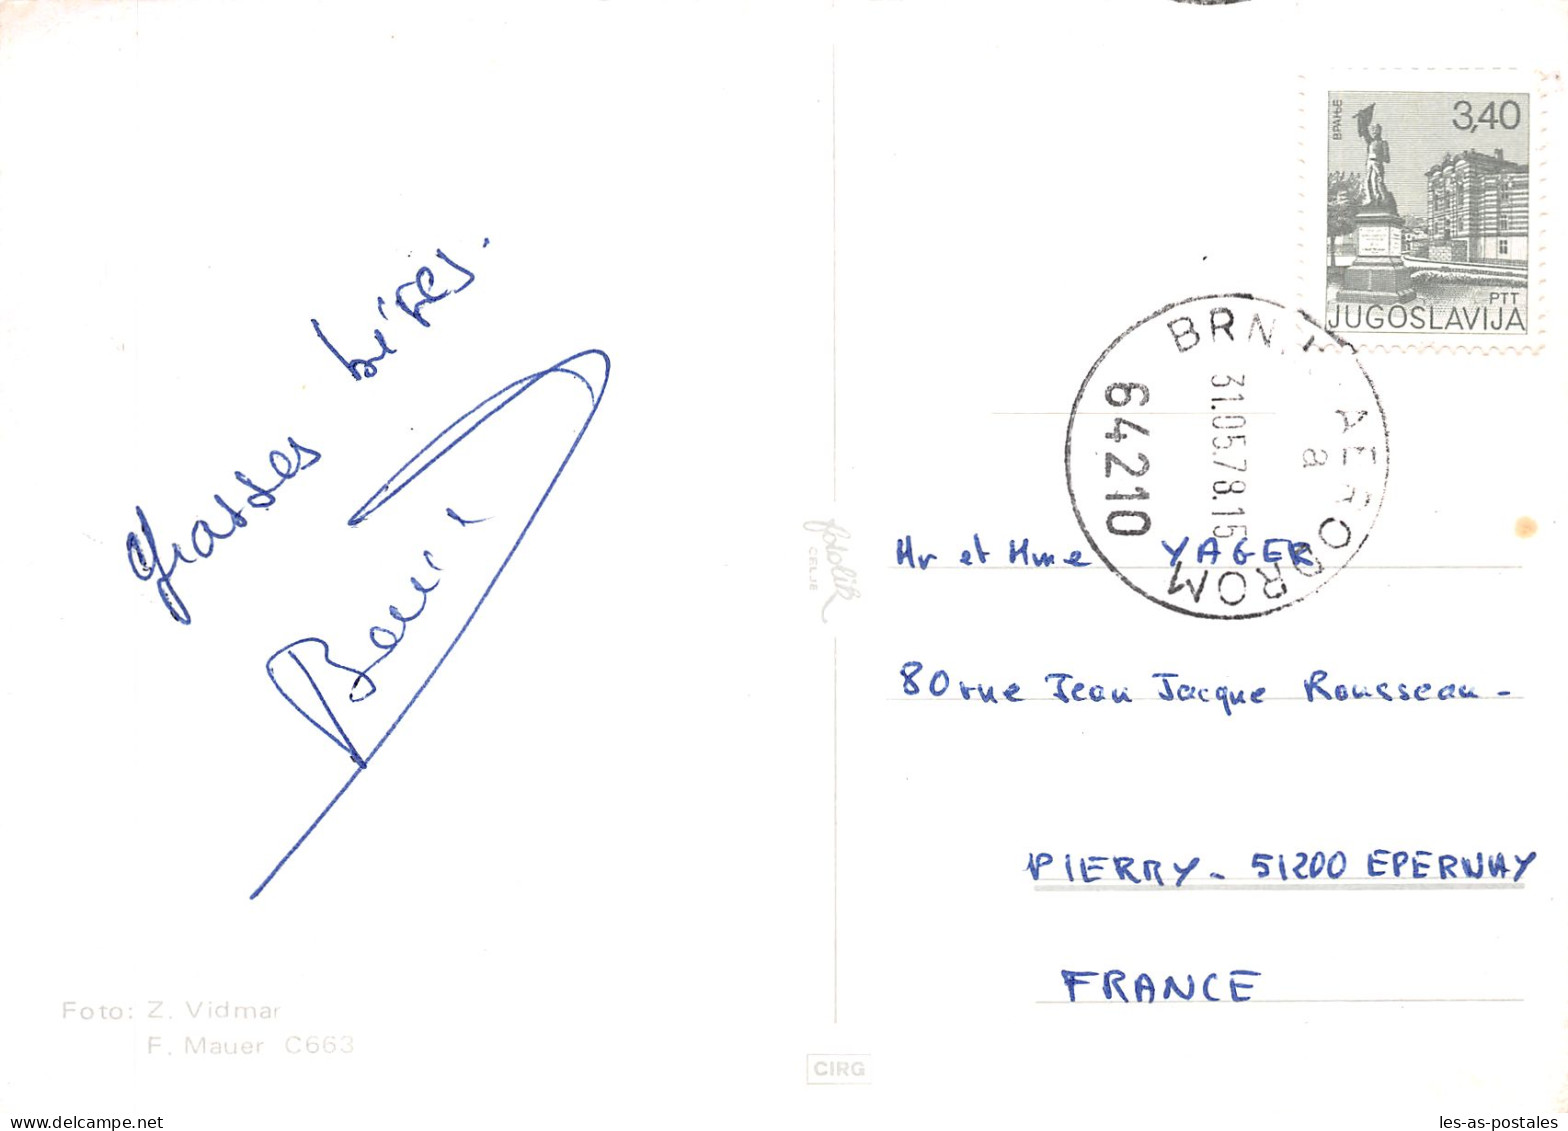 Grosses bises.
Foto: Z. Vidmar
F. Mauer C663
fotolik
CELJE
CIRG
ВРАЊЕ
3,40
PTT
JUGOSLAVIJA
BRNIK AERODROM
a
31.05.78.15
64210
Mr et Mme YAGER
80 rue Jean Jacque Rousseau -
PIERRY - 51200 EPERNAY
FRANCE
les-as-postales